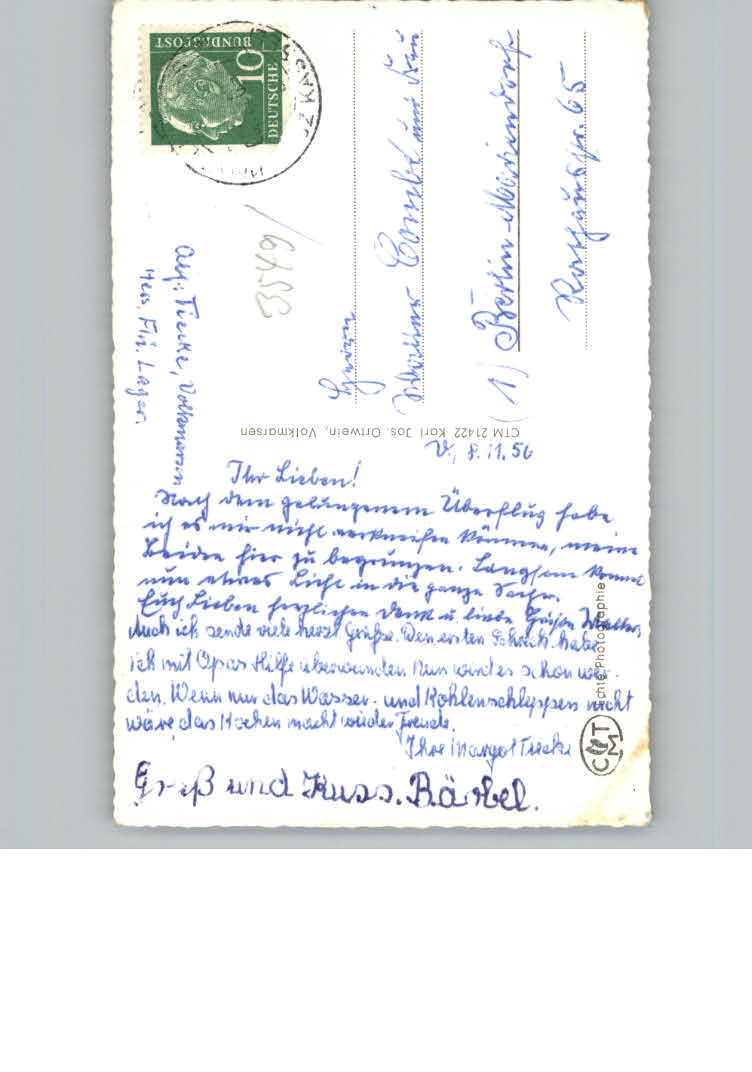 DEUTSCHE
BUNDESPOST
10
35419
Abs.: Tiecke, Volkmarsen
Hess. Flü. Lager.
Herrn
Walter und Frau
(1) Berlin-Mariendorf
Rathausstr. 65
CTM 21422 Karl Jos. Ortwein, Volkmarsen
V., 8.11.56
Ihr Lieben!
Nach dem gelungenem Überflug habe
ich es mir nicht verkneifen können, meine
Beiden hier zu begrunzen. Langsam kommt
nun etwas Licht in die ganze Sache.
Euch Lieben herzlichen Dank u. liebe Grüße Walter.
Auch ich sende viele herzl. Grüße. Den ersten Schreck habe
ich mit Opas Hilfe überwunden. Nun wird es schon wer-
den. Wenn nur das Wasser- und Kohlenschleppen nicht
wäre, das Kochen macht wieder Freude.
Ihre Margot Tiecke
Gruß und Kuss. Bärbel.
Echte Photographie
CTM